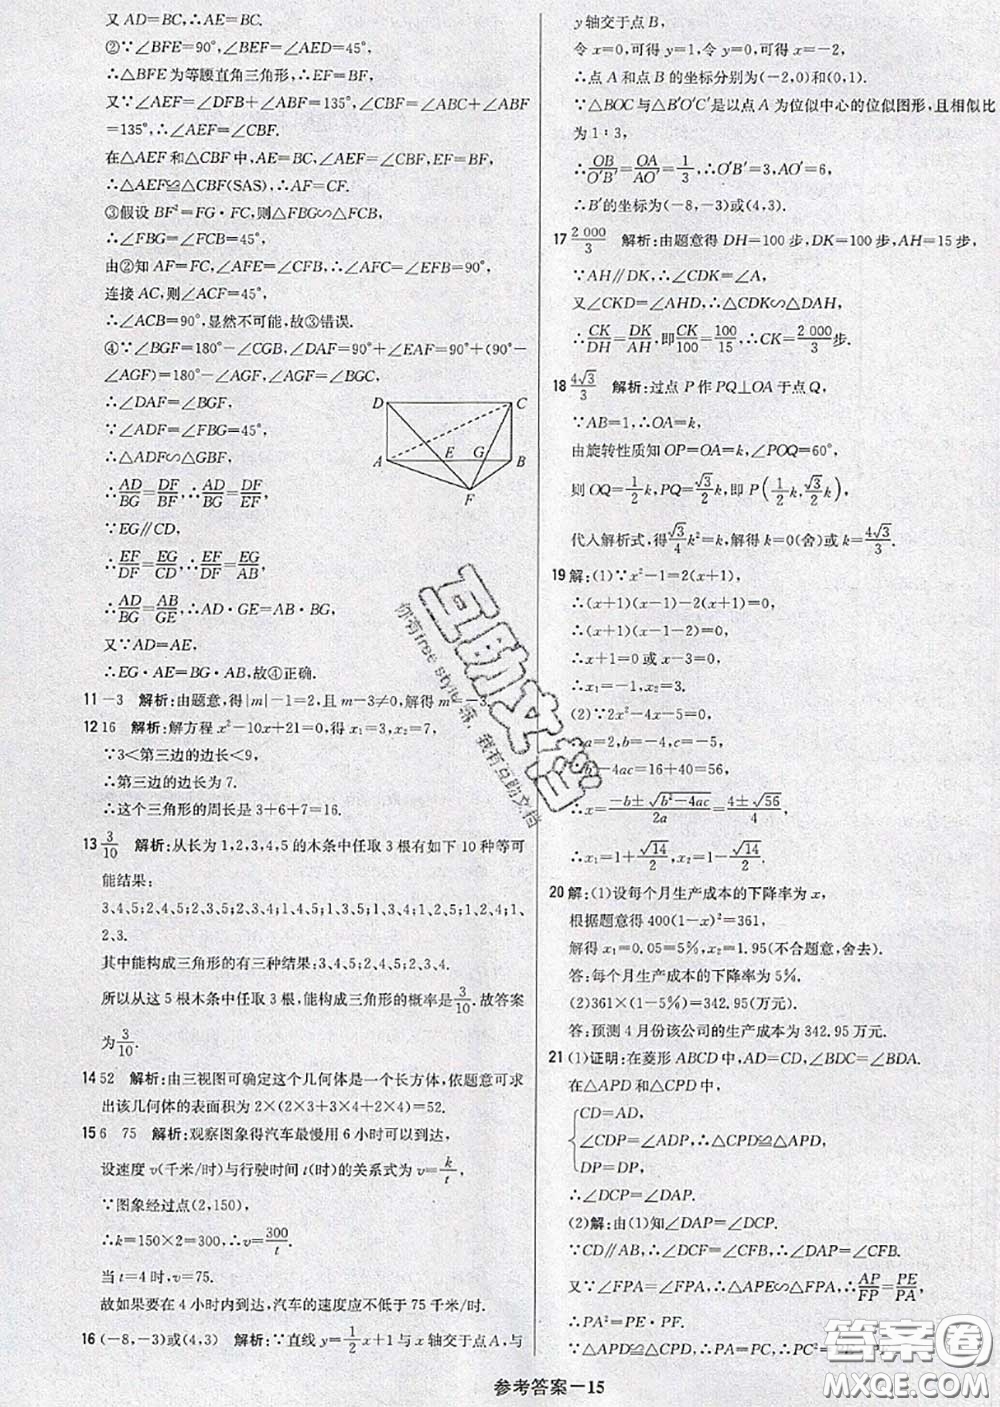 又 AD=BC,∴AE=BC.
②∵∠BFE=90°,∠BEF=∠AED=45°,
∴△BFE 为等腰直角三角形,
又∵∠AEF=∠DFB+∠ABF=135°,∠CBF=∠ABC+∠ABF
=135°,∴∠AEF=∠CBF.
在△AEF 和△CBF 中,AE=BC,∠AEF=∠CBF,EF=BF,
∴△AEF≌△CBF(SAS),∴AF=CF.
③假设 BF²=FG·FC,则△FBG∽△FCB,
∴∠FBG=∠FCB=45°,
由②知 AF=FC,∠AFE=∠CFB,∴∠AFC=∠EFB=90°,
连接 AC,则∠ACF=45°,
∴∠ACB=90°,显然不可能,故③错误.
④∵∠BGF=180°-∠CGB,∠DAF=90°+∠EAF=90°+(90°-
∠AGF)=180°-∠AGF,∠AGF=∠BGC,
∴∠DAF=∠BGF,
∵∠ADF=∠FBG=45°,
∴△ADF∽△GBF,
∴AD/BG=DF/BF,∴AD/BG=DF/EF,
∵EG∥CD,
∴EF/DF=EG/CD,∴EF/DF=EG/AB,
∴AD/BG=AB/GE,∴AD·GE=AB·BG,
又∵AD=AE,
∴EG·AE=BG·AB,故④正确.
D C
A E G B
F
11 -3 解析:由题意,得|m|-1=2,且 m-3≠0,解得 m=-3.
12 16 解析:解方程 x²-10x+21=0,得 x₁=3,x₂=7,
∵3<第三边的边长<9,
∴第三边的边长为 7.
∴这个三角形的周长是 3+6+7=16.
13 3/10 解析:从长为 1,2,3,4,5 的木条中任取 3 根有如下 10 种等可
能结果:
3,4,5;2,4,5;2,3,5;2,3,4;1,4,5;1,3,5;1,3,4;1,2,5;1,2,4;1,
2,3.
其中能构成三角形的有三种结果:3,4,5;2,4,5;2,3,4.
所以从这 5 根木条中任取 3 根,能构成三角形的概率是 3/10.故答案
为 3/10.
14 52 解析:由三视图可确定这个几何体是一个长方体,依题意可求
出该几何体的表面积为 2×(2×3+3×4+2×4)=52.
15 6 75 解析:观察图象得汽车最慢用 6 小时可以到达,
设速度 v(千米/时)与行驶时间 t(时)的关系式为 v=k/t,
∵图象经过点(2,150),
∴k=150×2=300,∴v=300/t.
当 t=4 时,v=75.
故如果要在 4 小时内到达,汽车的速度应不低于 75 千米/时.
16 (-8,-3)或(4,3) 解析:∵直线 y=1/2x+1 与 x 轴交于点 A,与
y 轴交于点 B,
令 x=0,可得 y=1,令 y=0,可得 x=-2,
∴点 A 和点 B 的坐标分别为(-2,0)和(0,1).
∵△BOC 与△B′O′C′是以点 A 为位似中心的位似图形,且相似比
为 1∶3,
∴OB/O′B′=OA/AO′=1/3,∴O′B′=3,AO′=6,
∴B′的坐标为(-8,-3)或(4,3).
17 2 000/3 解析:由题意得 DH=100 步,DK=100 步,AH=15 步,
∵AH∥DK,∴∠CDK=∠A,
又∠CKD=∠AHD,∴△CDK∽△DAH,
∴CK/DH=DK/AH,即CK/100=100/15,∴CK=2 000/3步.
18 4√3/3 解析:过点 P 作 PQ⊥OA 于点 Q,
∵AB=1,∴OA=k.
由旋转性质知 OP=OA=k,∠POQ=60°,
则 OQ=1/2k,PQ=√3/2k,即 P(1/2k,√3/2k),
代入解析式,得√3/4k²=k,解得 k=0(舍)或 k=4√3/3.
19 解:(1)∵x²-1=2(x+1),
∴(x+1)(x-1)-2(x+1)=0,
∴(x+1)(x-3)=0,
∴x+1=0 或 x-3=0,
∴x₁=-1,x₂=3.
(2)∵2x²-4x-5=0,
∴a=2,b=-4,c=-5,
∴b²-4ac=16+40=56,
∴x=(-b±√(b²-4ac))/2a=(4±√56)/4,
∴x₁=1+√14/2,x₂=1-√14/2.
20 解:(1)设每个月生产成本的下降率为 x,
根据题意得 400(1-x)²=361,
解得 x₁=0.05=5%,x₂=1.95(不合题意,舍去).
答:每个月生产成本的下降率为 5%.
(2)361×(1-5%)=342.95(万元).
答:预测 4 月份该公司的生产成本为 342.95 万元.
21 (1)证明:在菱形 ABCD 中,AD=CD,∠BDC=∠BDA.
在△APD 和△CPD 中,
CD=AD,
∠CDP=∠ADP,∴△CPD≌△APD,
DP=DP,
∴∠DCP=∠DAP.
(2)解:由(1)知∠DAP=∠DCP.
∵CD∥AB,∴∠DCF=∠CFB,∴∠DAP=∠CFB.
又∵∠FPA=∠FPA,∴△APE∽△FPA,∴AP/FP=PE/PA,
∴PA²=PE·PF.
∵△APD≌△CPD,∴PA=PC,∴PC²=
参考答案—15
互助文档
你有free style/嗎,我有互助文档
答案圈
MXQE.COM